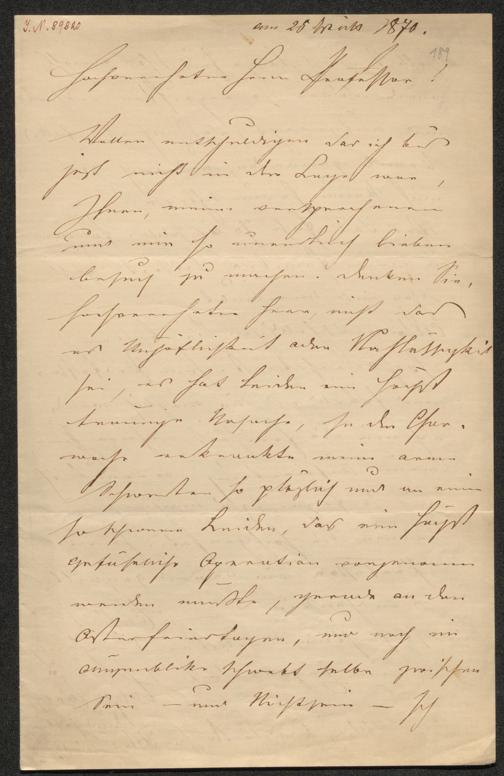 I. N. 89820
am 25 1870.
189
Hochverehrter Herr Professor!
Wollen entschuldigen das ich bis
jezt nicht in der Lage war,
Ihnen, meinen versprochenen
und mir so unendlich lieben
besuch zu machen. denken Sie,
hochverehrter Herr, nicht das
es Unhöflichkeit oder Nachlässigkeit
sei, es hat leider ein höchst
traurige Ursache, in der Char-
woche erkrankte meine arme
Schwester so plözlich und an einem
so schweren Leiden, das eine höchst
gefährliche Operation vorgenommen
werden mußte, gerade an den
Osterfeiertagen, und noch im
augenblike schwebt selbe zwischen
Sein — und Nichtsein — Ich